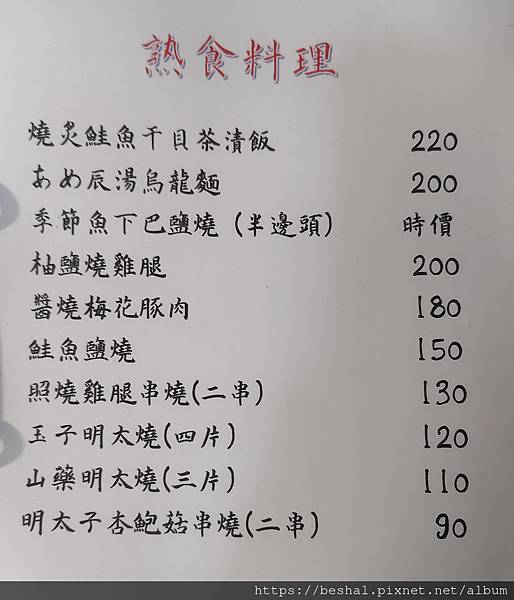 熟食料理
燒炙鮭魚干貝茶漬飯 220
あめ辰湯烏龍麵 200
季節魚下巴鹽燒 (半邊頭) 時價
柚鹽燒雞腿 200
醬燒梅花豚肉 180
鮭魚鹽燒 150
照燒雞腿串燒(二串) 130
玉子明太燒(四片) 120
山藥明太燒(三片) 110
明太子杏鮑菇串燒(二串) 90
https://beshal.pixnet.net/album